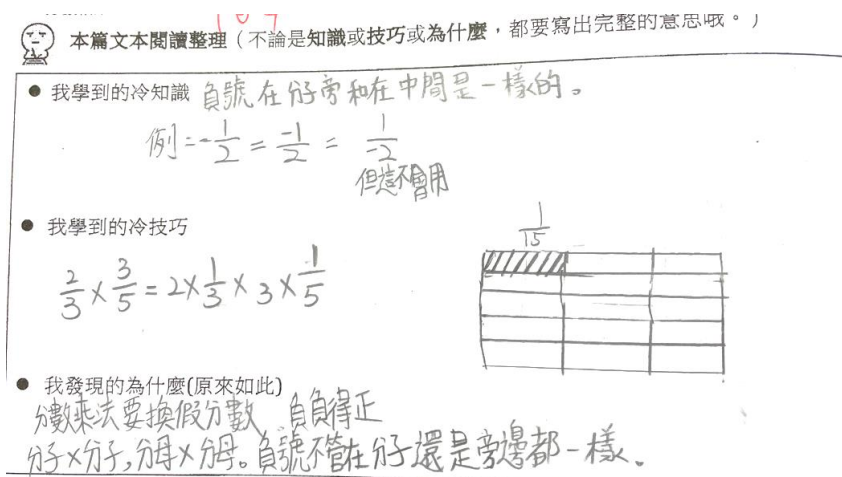 本篇文本閱讀整理(不論是知識或技巧或為什麼,都要寫出完整的意思哦。)
● 我學到的冷知識 負號在分子旁和在中間是一樣的。
例:-1/2 = -1/2 = 1/-2
但這不會用
● 我學到的冷技巧
2/3 × 3/5 = 2×1/3 × 3 × 1/5
1/15
● 我發現的為什麼(原來如此)
分數乘法要換假分數、負負得正
分子×分子,分母×分母。負號不管在分子還是旁邊都一樣。